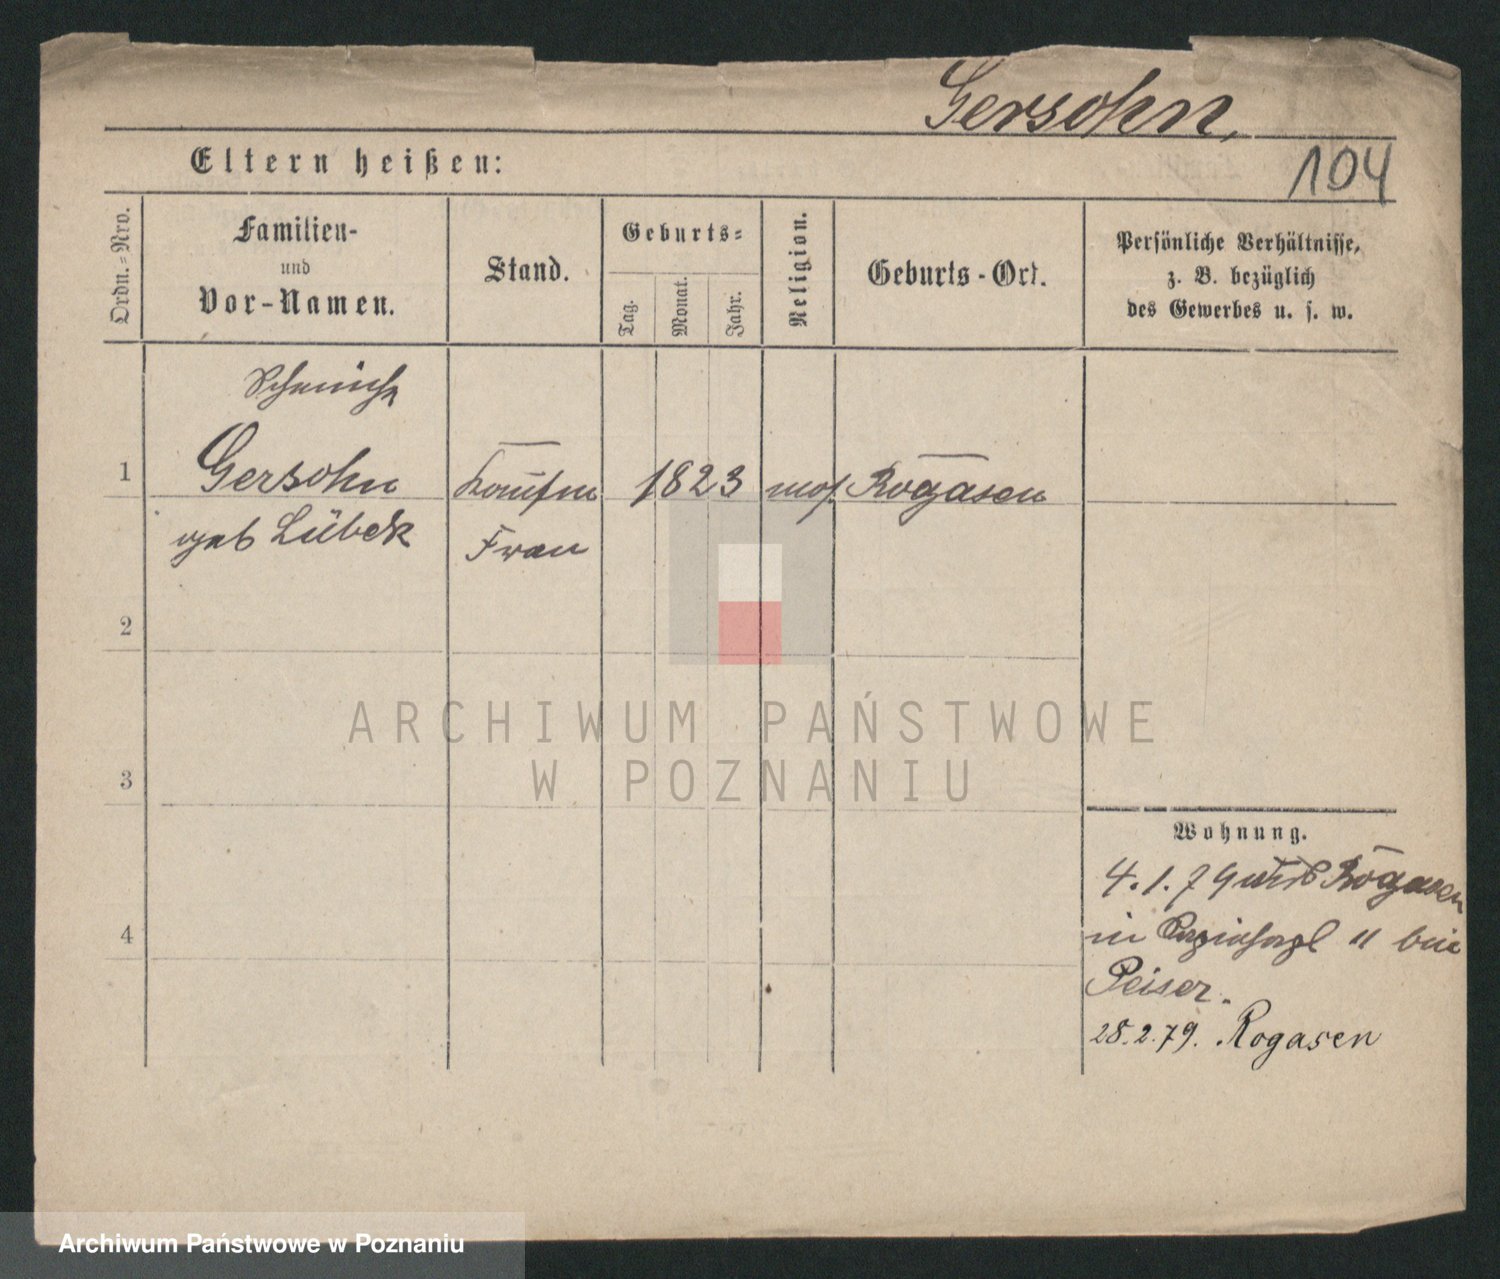 Gersohn,
Eltern heißen:
104
Ordn.=Nro.
Familien-
und
Vor-Namen.
Stand.
Geburts=
Tag.
Monat.
Jahr.
Religion.
Geburts-Ort.
Persönliche Verhältnisse,
z. B. bezüglich
des Gewerbes u. s. w.
1
Gersohn
Kaufm
1823
mos.
Rogasen
geb Lübeck
Frau
2
3
4
ARCHIWUM PAŃSTWOWE
W POZNANIU
Wohnung.
4.1.79 Rogasen
in 11 bei
Peiser.
28.2.79. Rogasen
Archiwum Państwowe w Poznaniu